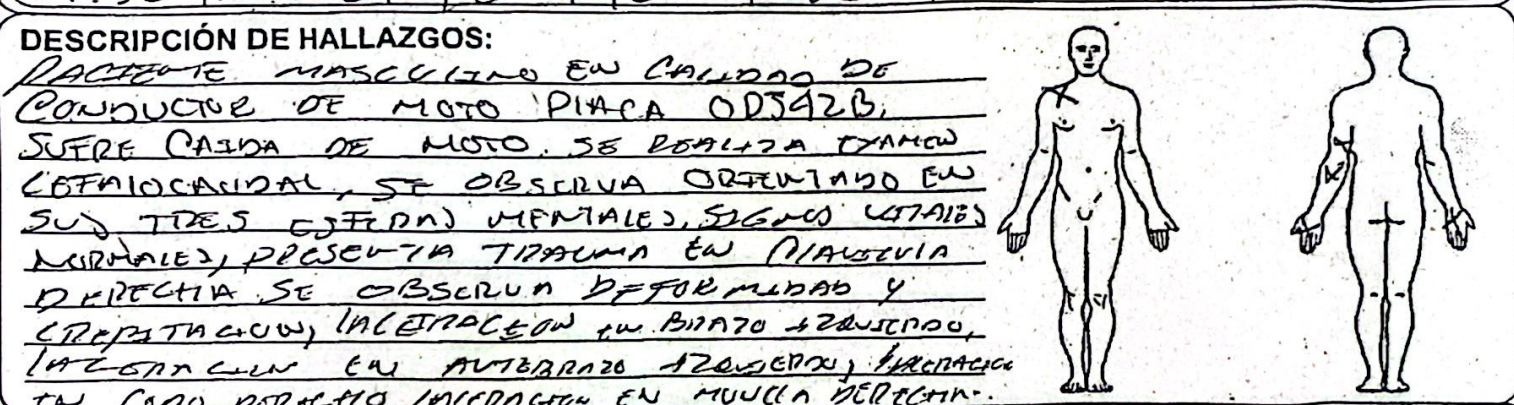 DESCRIPCIÓN DE HALLAZGOS:
PACIENTE MASCULINO EN CALIDAD DE
CONDUCTOR DE MOTO PLACA ODJ42B,
SUFRE CAIDA DE MOTO. SE REALIZA EXAMEN
CEFALOCAUDAL, SE OBSERVA ORIENTADO EN
SUS TRES ESFERAS MENTALES, SIGNOS VITALES
NORMALES, PRESENTA TRAUMA EN CLAVICULA
DERECHA SE OBSERVA DEFORMIDAD Y
CREPITACION, LACERACION EN BRAZO IZQUIERDO,
LACERACION EN ANTEBRAZO IZQUIERDO, LACERACION
EN CODO DERECHO LACERACION EN MUÑECA DERECHA.